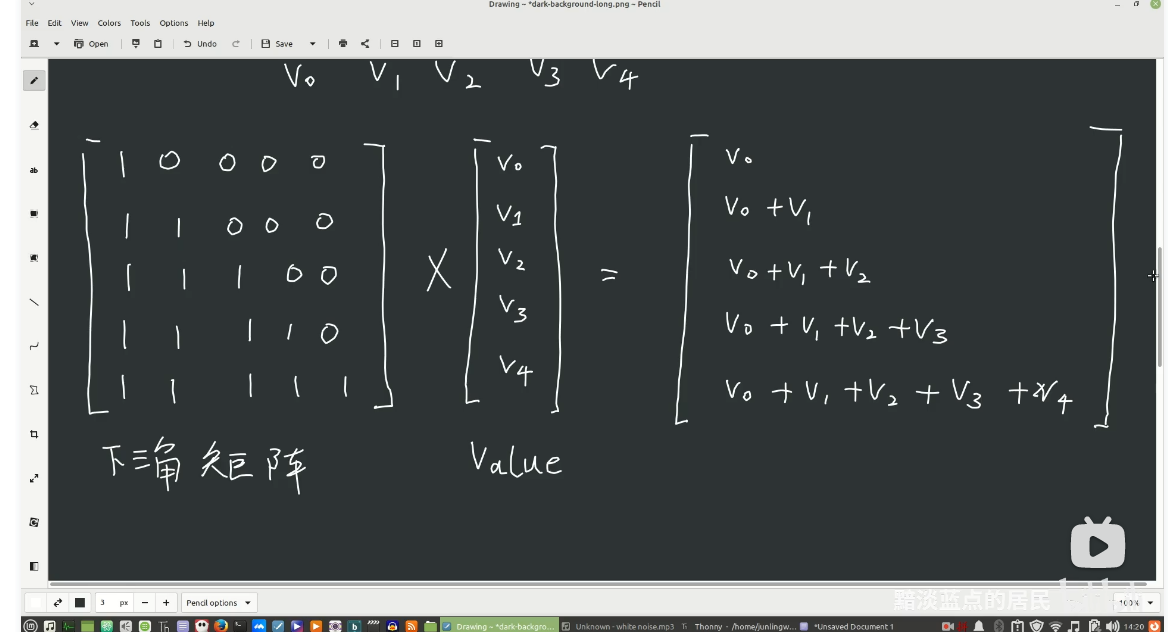 Drawing – *dark-background-long.png – Pencil
File Edit View Colors Tools Options Help
Open Undo Save
V0 V1 V2 V3 V4
1 0 0 0 0
1 1 0 0 0
1 1 1 0 0
1 1 1 1 0
1 1 1 1 1
X
V0
V1
V2
V3
V4
=
V0
V0 + V1
V0 + V1 + V2
V0 + V1 + V2 + V3
V0 + V1 + V2 + V3 + V4
下三角矩阵 Value
ab
3 px − + Pencil options
黯淡蓝点的居民
100%
Drawing – *dark-backgro... Unknown - white noise.mp3 Thonny - /home/junlingw... *Unsaved Document 1 14:20